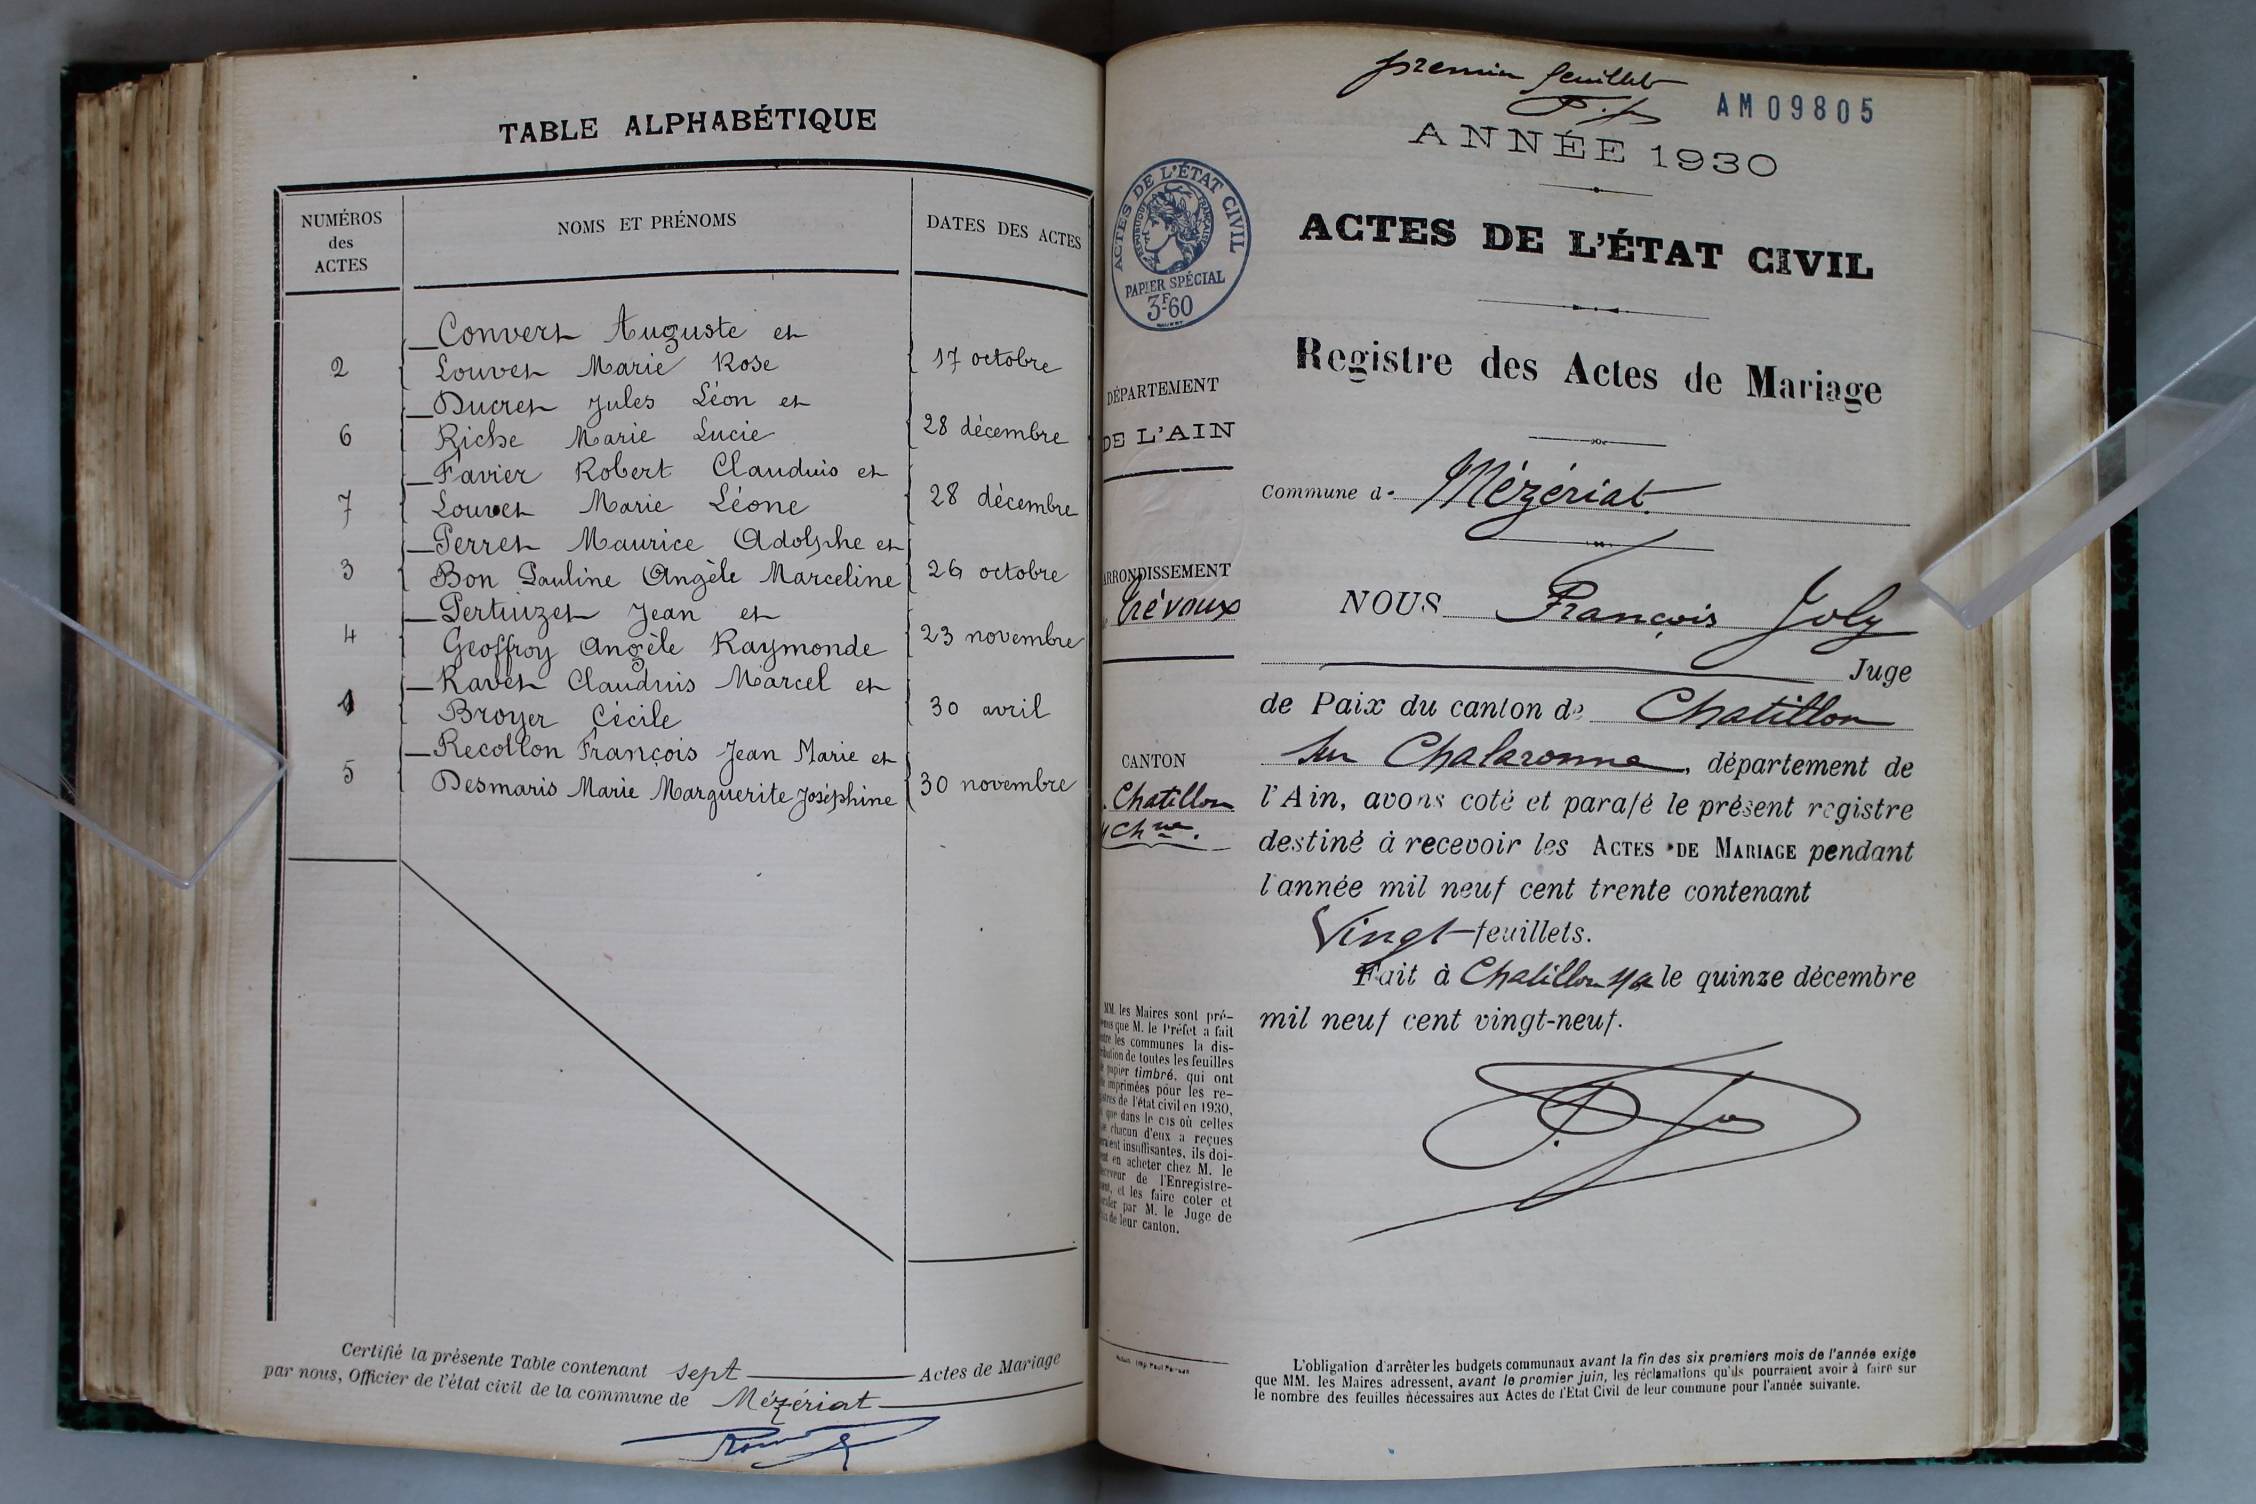 TABLE ALPHABÉTIQUE
NUMÉROS
des
ACTES
NOMS ET PRÉNOMS
DATES DES ACTES
Convert Auguste et
2 Louvet Marie Rose 17 octobre
Ducret Jules Léon et
6 Riche Marie Lucie 28 décembre
Favier Robert Claudius et
7 Louvet Marie Léone 28 décembre
Perret Maurice Adolphe et
3 Bon Pauline Angèle Marceline 26 octobre
Pertuizet Jean et
4 Geoffroy Angèle Raymonde 23 novembre
Ravet Claudius Marcel et
1 Broyer Cécile 30 avril
Recollon François Jean Marie et
5 Desmaris Marie Marguerite Joséphine 30 novembre
Certifié la présente Table contenant sept Actes de Mariage
par nous, Officier de l'état civil de la commune de Mézériat
premier feuillet
AM09805
ANNÉE 1930
ACTES DE L'ÉTAT CIVIL
RÉPUBLIQUE FRANÇAISE
PAPIER SPÉCIAL
3F60
ACTES DE L'ÉTAT CIVIL
Registre des Actes de Mariage
DÉPARTEMENT
DE L'AIN
Commune d Mézériat
ARRONDISSEMENT
Trévoux
NOUS François Joly
Juge
de Paix du canton de Chatillon
sur Chalaronne, département de
CANTON
Chatillon
s/ Chne.
l'Ain, avons coté et parafé le présent registre
destiné à recevoir les ACTES DE MARIAGE pendant
l'année mil neuf cent trente contenant
Vingt feuillets.
Fait à Chatillon le quinze décembre
mil neuf cent vingt-neuf.
MM. les Maires sont pré-
que M. le Préfet a fait
les communes la dis-
de toutes les feuilles
papier timbré. qui ont
imprimées pour les re-
de l'état civil en 1930,
que dans le cas où celles
chacun d'eux a reçues
insuffisantes, ils doi-
en acheter chez M. le
de l'Enregistre-
et les faire coter et
par M. le Juge de
de leur canton.
L'obligation d'arrêter les budgets communaux avant la fin des six premiers mois de l'année exige
que MM. les Maires adressent, avant le premier juin, les réclamations qu'ils pourraient avoir à faire sur
le nombre des feuilles nécessaires aux Actes de l'Etat Civil de leur commune pour l'année suivante.